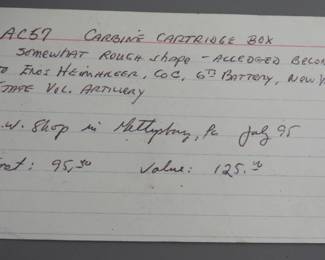 AC57 CARBINE CARTRIDGE BOX
SOMEWHAT ROUGH SHAPE - ALLEGED BELON
TO ENOS CoC, 6TH BATTERY, NEW Y
TATE VOL. ARTILLERY
.W. Shop in Pa July 95
rst: 95.00 Value: 125.00